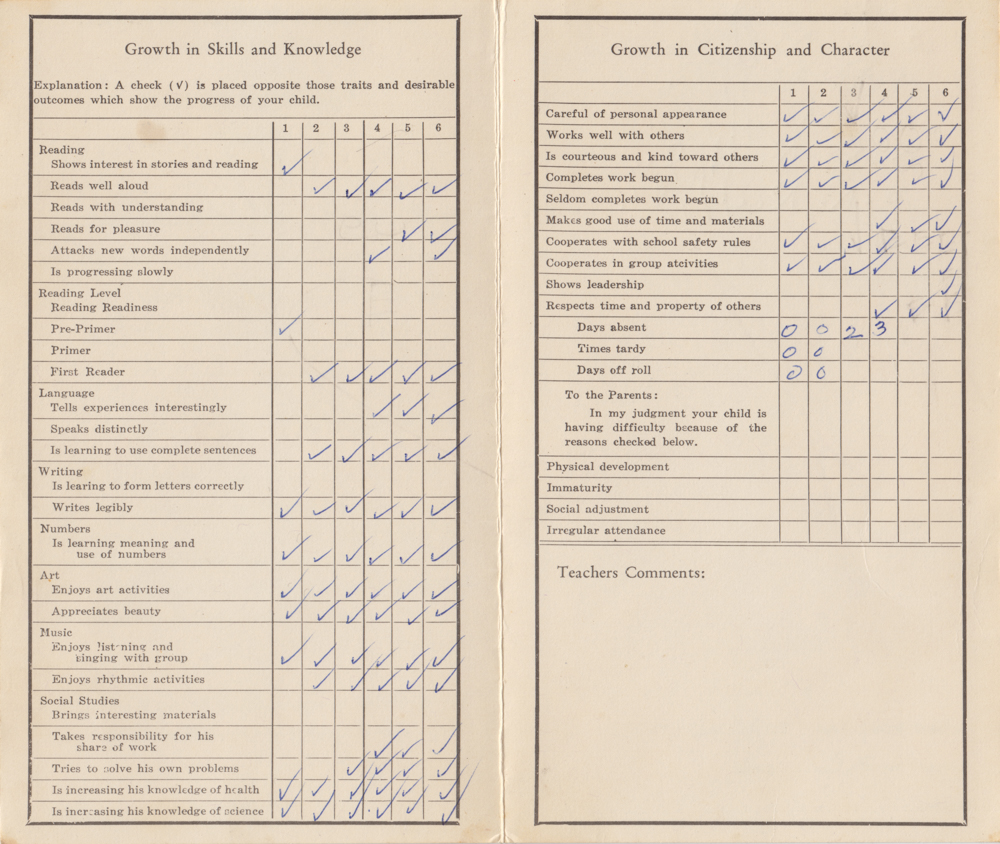 Growth in Skills and Knowledge
Explanation: A check (√) is placed opposite those traits and desirable
outcomes which show the progress of your child.
1 2 3 4 5 6
Reading
Shows interest in stories and reading √
Reads well aloud √ √ √ √ √
Reads with understanding
Reads for pleasure √ √
Attacks new words independently √ √
Is progressing slowly
Reading Level
Reading Readiness
Pre-Primer √
Primer
First Reader √ √ √ √ √
Language
Tells experiences interestingly √ √ √
Speaks distinctly
Is learning to use complete sentences √ √ √ √ √
Writing
Is learing to form letters correctly
Writes legibly √ √ √ √ √ √
Numbers
Is learning meaning and
use of numbers √ √ √ √ √ √
Art
Enjoys art activities √ √ √ √ √ √
Appreciates beauty √ √ √ √ √ √
Music
Enjoys list-ning and
singing with group √ √ √ √ √ √
Enjoys rhythmic activities √ √ √ √ √
Social Studies
Brings interesting materials
Takes responsibility for his
share of work √ √ √
Tries to solve his own problems √ √ √ √
Is increasing his knowledge of health √ √ √ √ √ √
Is increasing his knowledge of science √ √ √ √ √ √
Growth in Citizenship and Character
1 2 3 4 5 6
Careful of personal appearance √ √ √ √ √ √
Works well with others √ √ √ √ √ √
Is courteous and kind toward others √ √ √ √ √ √
Completes work begun √ √ √ √ √ √
Seldom completes work begun
Makes good use of time and materials √ √ √
Cooperates with school safety rules √ √ √ √ √ √
Cooperates in group atcivities √ √ √ √ √ √
Shows leadership √
Respects time and property of others √ √ √
Days absent 0 0 2 3
Times tardy 0 0
Days off roll 0 0
To the Parents:
In my judgment your child is
having difficulty because of the
reasons checked below.
Physical development
Immaturity
Social adjustment
Irregular attendance
Teachers Comments: